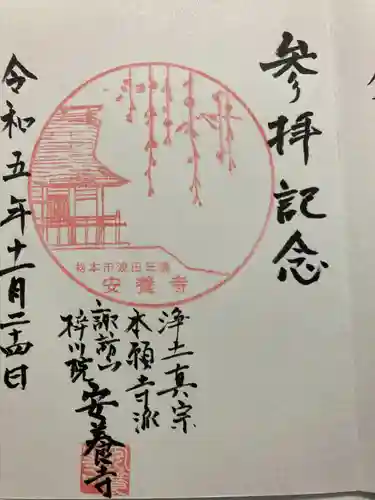 参拝記念
浄土真宗
本願寺派
諏訪山
梓川院
安養寺
松本市波田三溝
安養寺
令和五年十一月二十四日